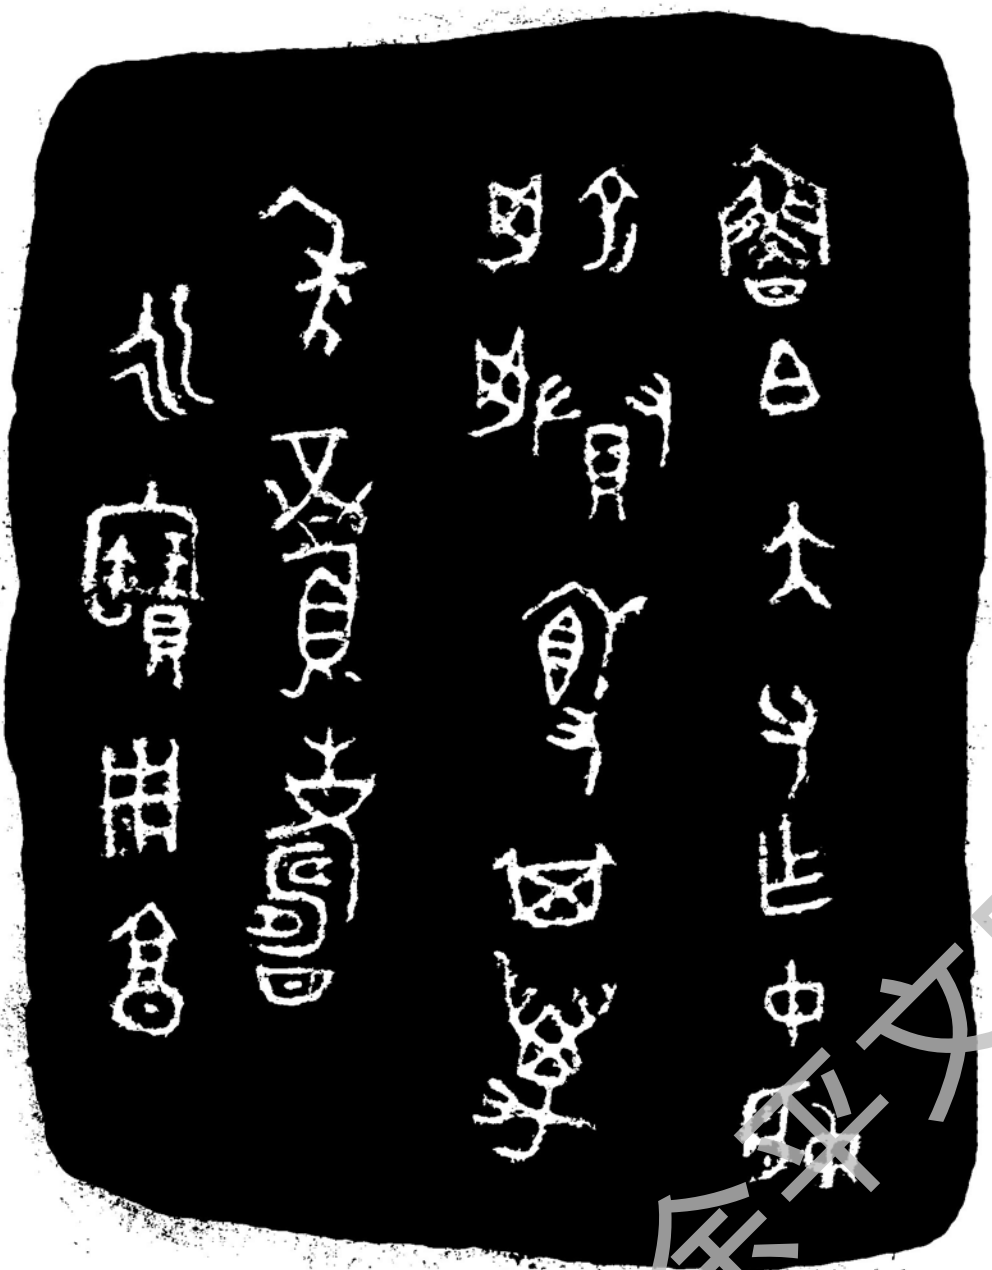 魯白大父乍中姬
俞媵𣪘其萬
年眉壽
永寶用享